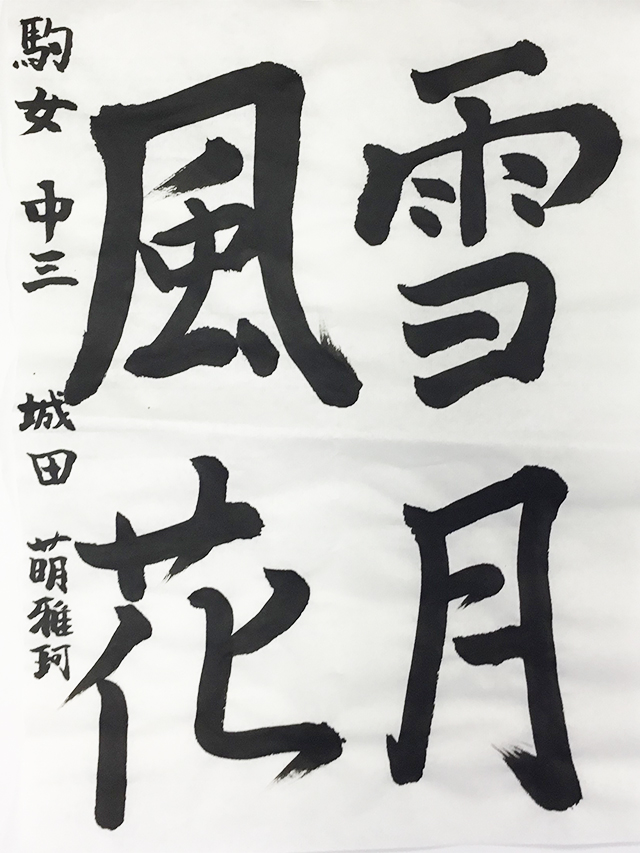 雪月
風花
駒女 中三 城田 萌雅珂